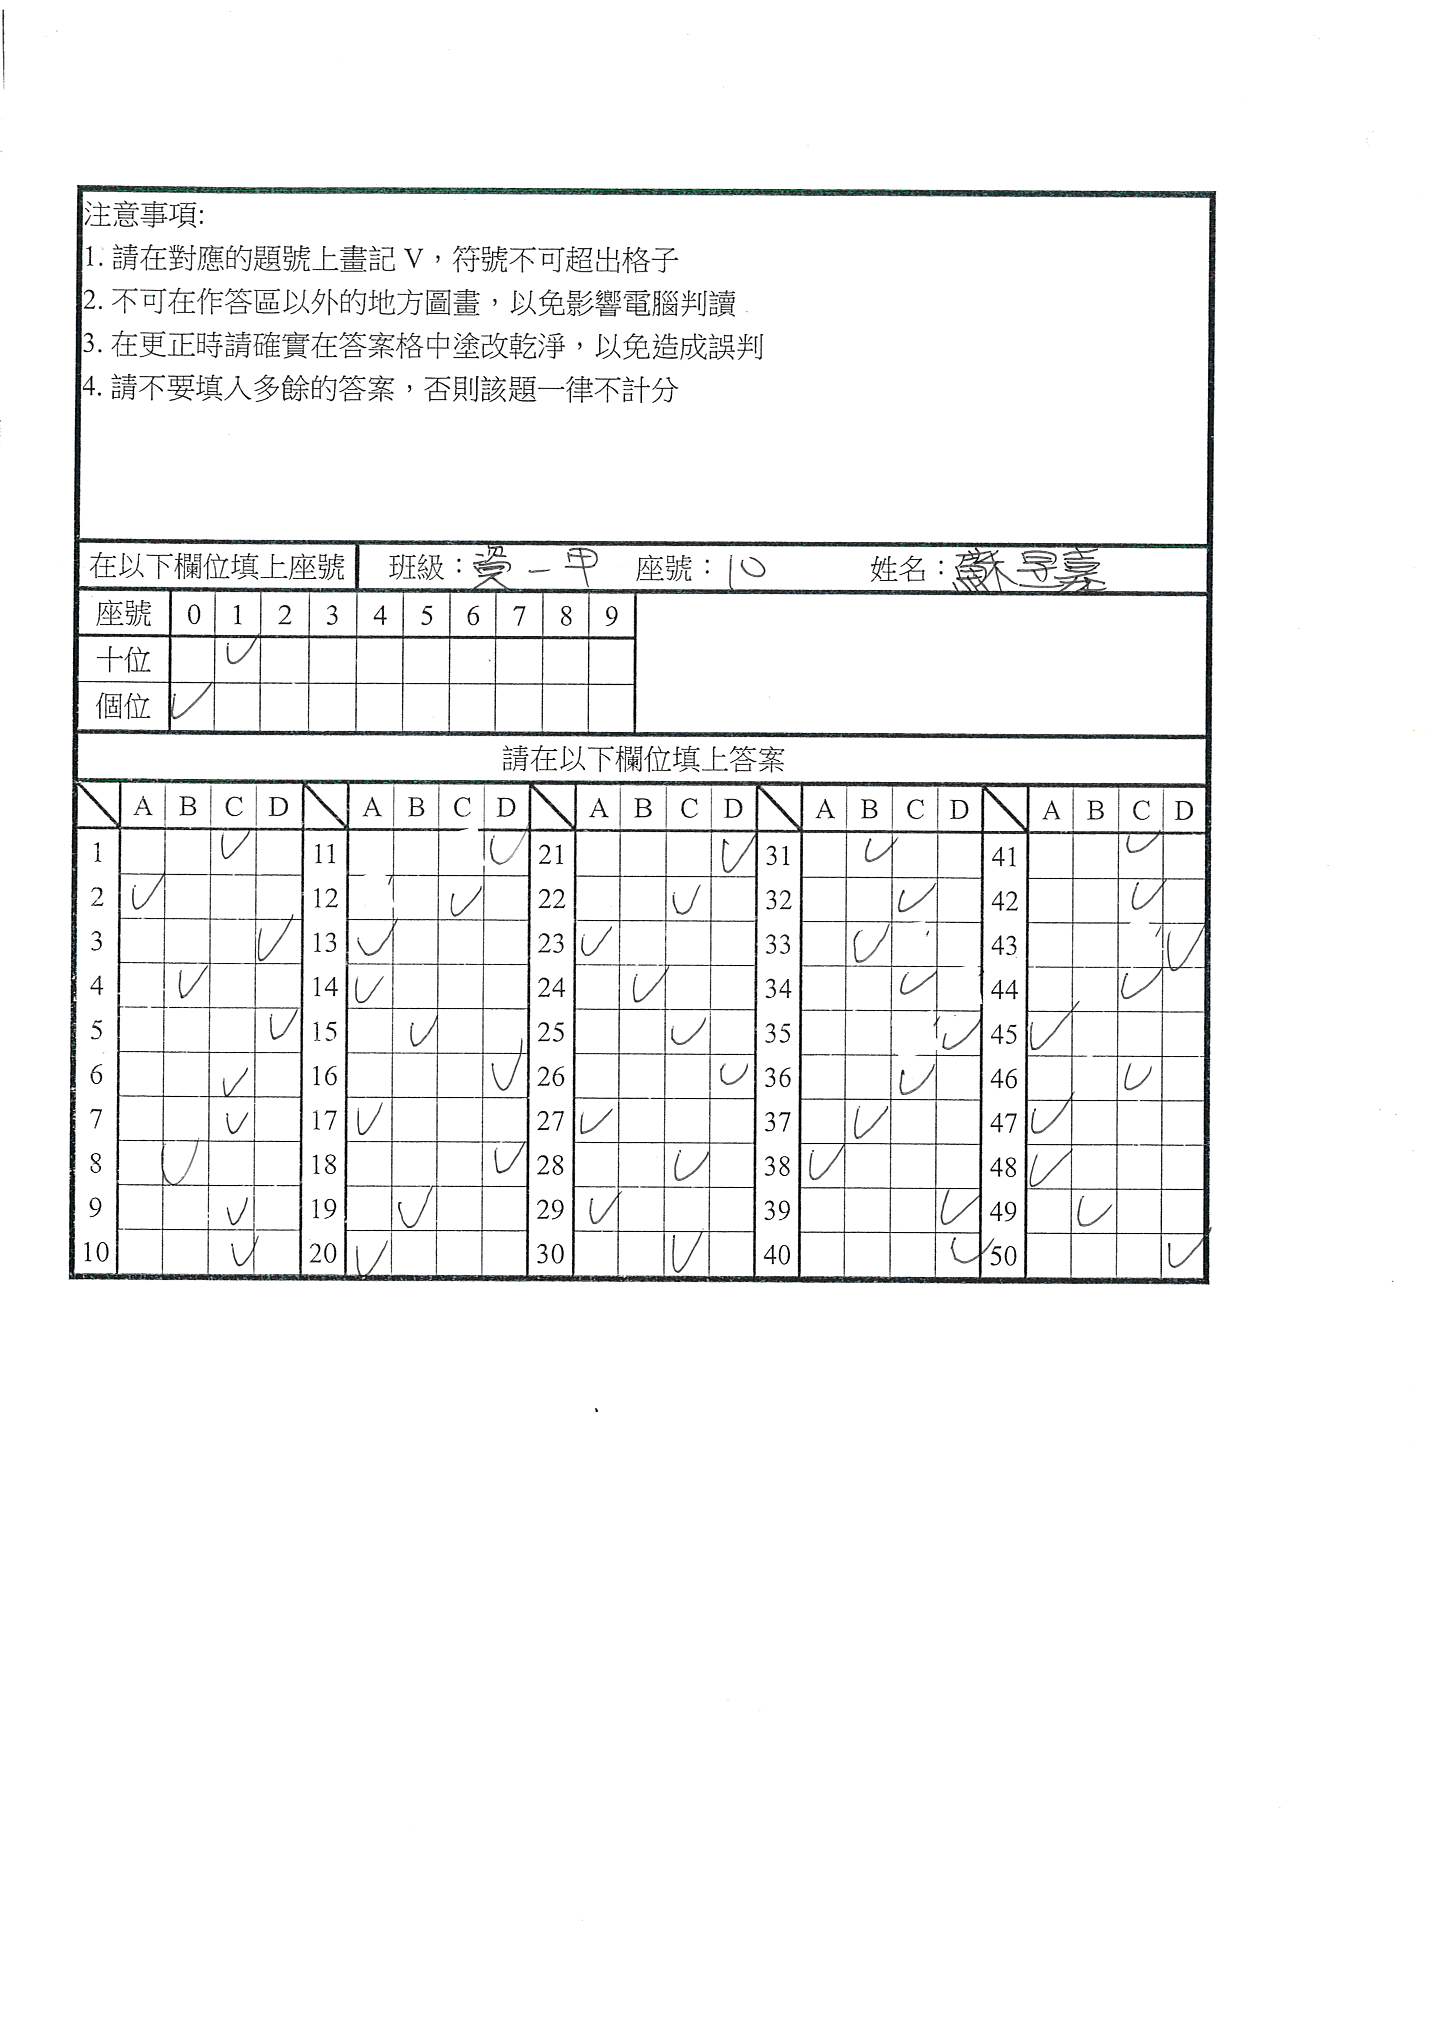 注意事項:
1. 請在對應的題號上畫記 V，符號不可超出格子
2. 不可在作答區以外的地方圖畫，以免影響電腦判讀
3. 在更正時請確實在答案格中塗改乾淨，以免造成誤判
4. 請不要填入多餘的答案，否則該題一律不計分
在以下欄位填上座號 班級：資一甲 座號：10 姓名：蘇 嘉
座號 0 1 2 3 4 5 6 7 8 9
十位 V
個位 V
請在以下欄位填上答案
A B C D A B C D A B C D A B C D A B C D
1 V 11 V 21 V 31 V 41 V
2 V 12 V 22 V 32 V 42 V
3 V 13 V 23 V 33 V 43 V
4 V 14 V 24 V 34 V 44 V
5 V 15 V 25 V 35 V 45 V
6 V 16 V 26 V 36 V 46 V
7 V 17 V 27 V 37 V 47 V
8 V 18 V 28 V 38 V 48 V
9 V 19 V 29 V 39 V 49 V
10 V 20 V 30 V 40 V 50 V